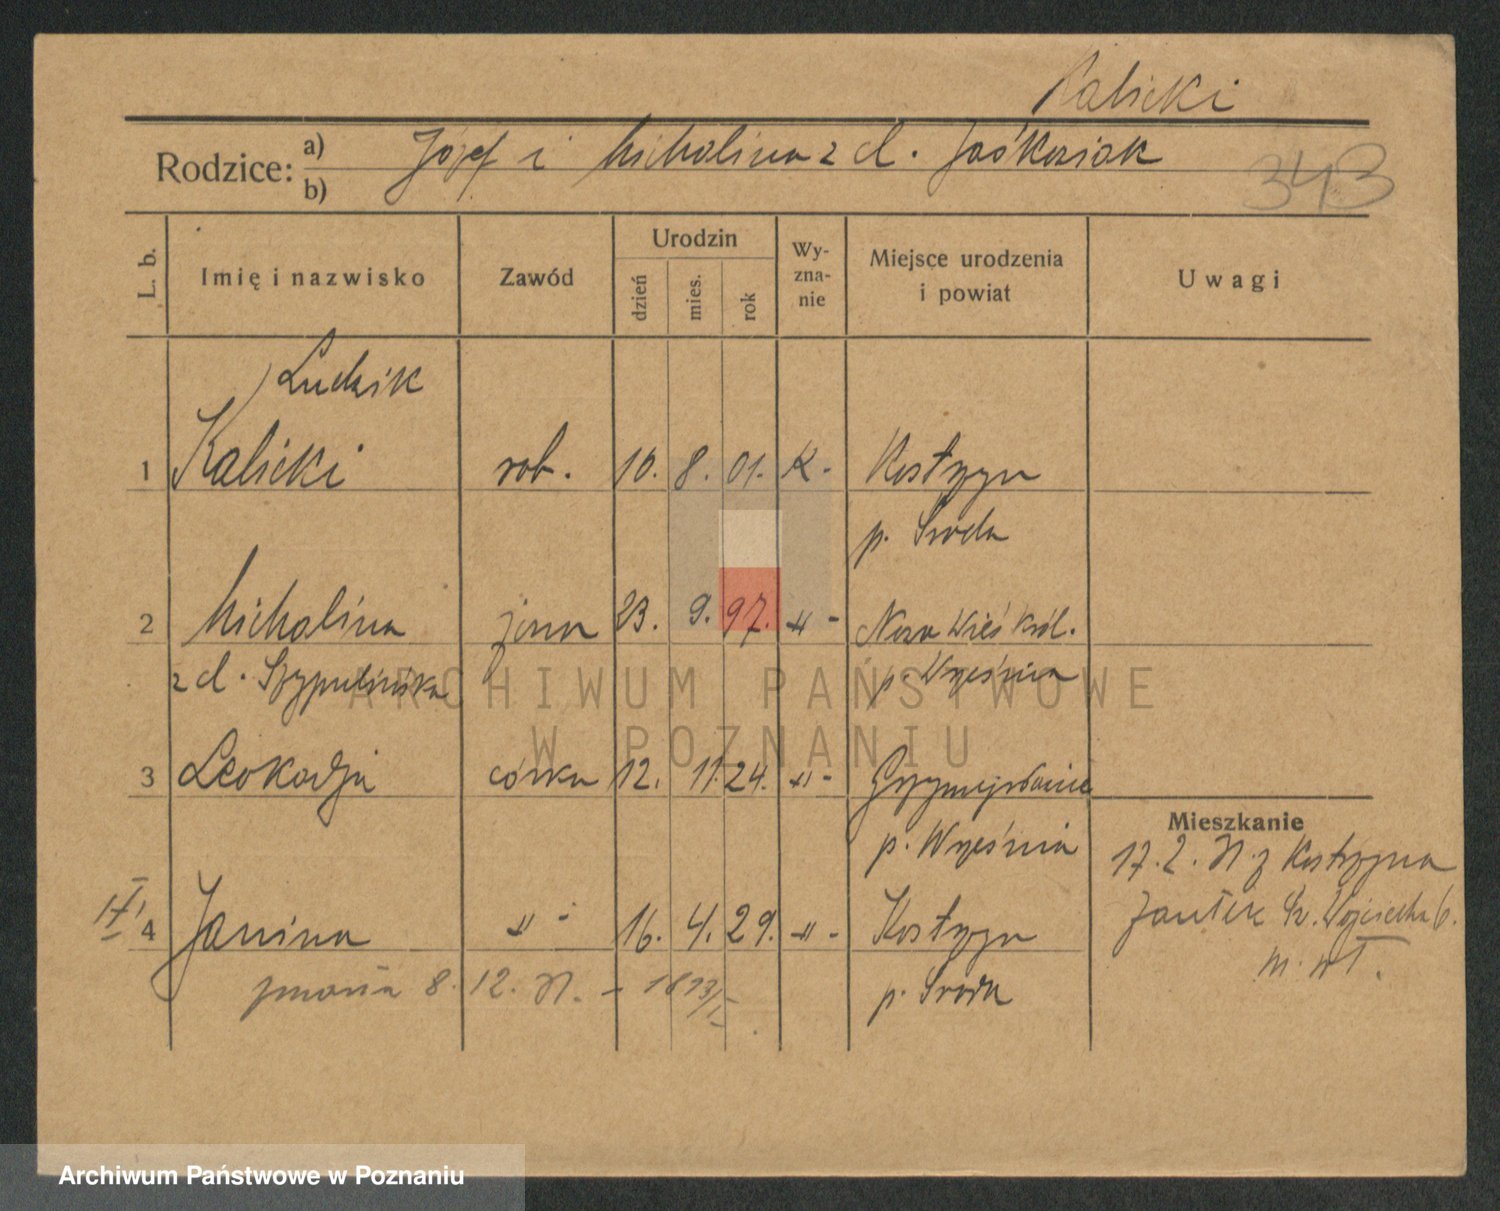 Kalicki
Rodzice: a) Józef i Michalina z d. Jaśkowiak
b)
343
L. b.
Imię i nazwisko
Zawód
Urodzin
dzień
mies.
rok
Wy-
zna-
nie
Miejsce urodzenia
i powiat
Uwagi
Ludwik
1 Kalicki rob. 10. 8. 01. K. Kostrzyn
p. Środa
2 Michalina żona 23. 9. 97. -"- Nowa Wieś Król.
z d. Szypulińska p. Września
3 Leokadja córka 12. 11. 24. -"-
p. Września
Mieszkanie
17. 2. z Kostrzyna
4 Janina -"- 16. 4. 29. -"- Kostrzyn
Św. Wojciecha
zmarła 8. 12. p. Środa
ARCHIWUM PAŃSTWOWE
W POZNANIU
Archiwum Państwowe w Poznaniu